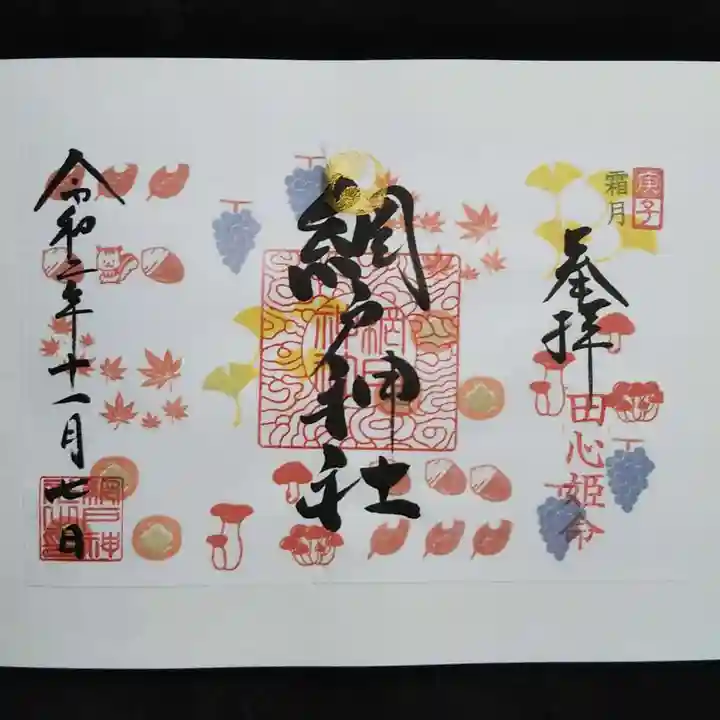 庚子
霜月
奉拝
田心姫命
網戸神社
網戸神社
令和二年十一月七日
網戸神